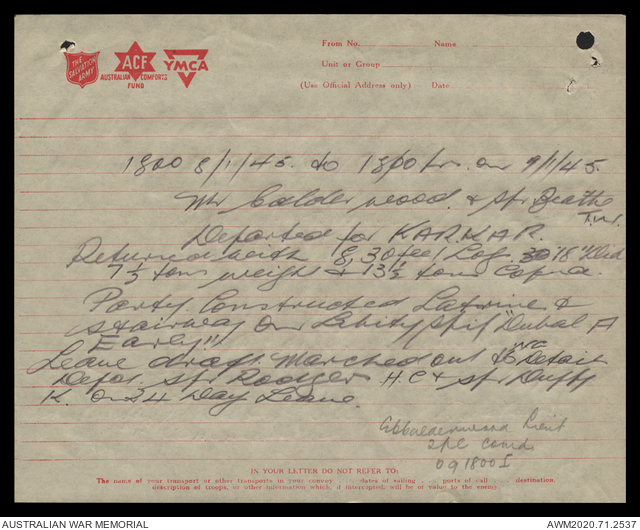 THE SALVATION ARMY
ACF
AUSTRALIAN COMFORTS FUND
YMCA
From No. Name
Unit or Group
(Use Official Address only) Date
1800 8/1/45. to 1800 hrs. on 9/1/45.
Mr Calderwood. & Spr Beattie
T.W.
Departed for KARKAR
Returned with 8, 30 feet Log. 30 "18" Died
7½ tons weight & 13½ tons Copra.
Party Constructed Latrine &
stairway on Liberty ship "Dubal A
Early"
Leave draft Marched out to NG Detail
Depot Spr Rodger H.C & Spr Duffy
K. on 24 Day Leave.
Calderwood Lieut
2RC Comd
091800I
IN YOUR LETTER DO NOT REFER TO:
The name of your transport or other transports in your convoy dates of sailing ports of call destination.
description of troops, or other information which, if intercepted, will be of value to the enemy.
AUSTRALIAN WAR MEMORIAL
AWM2020.71.2537